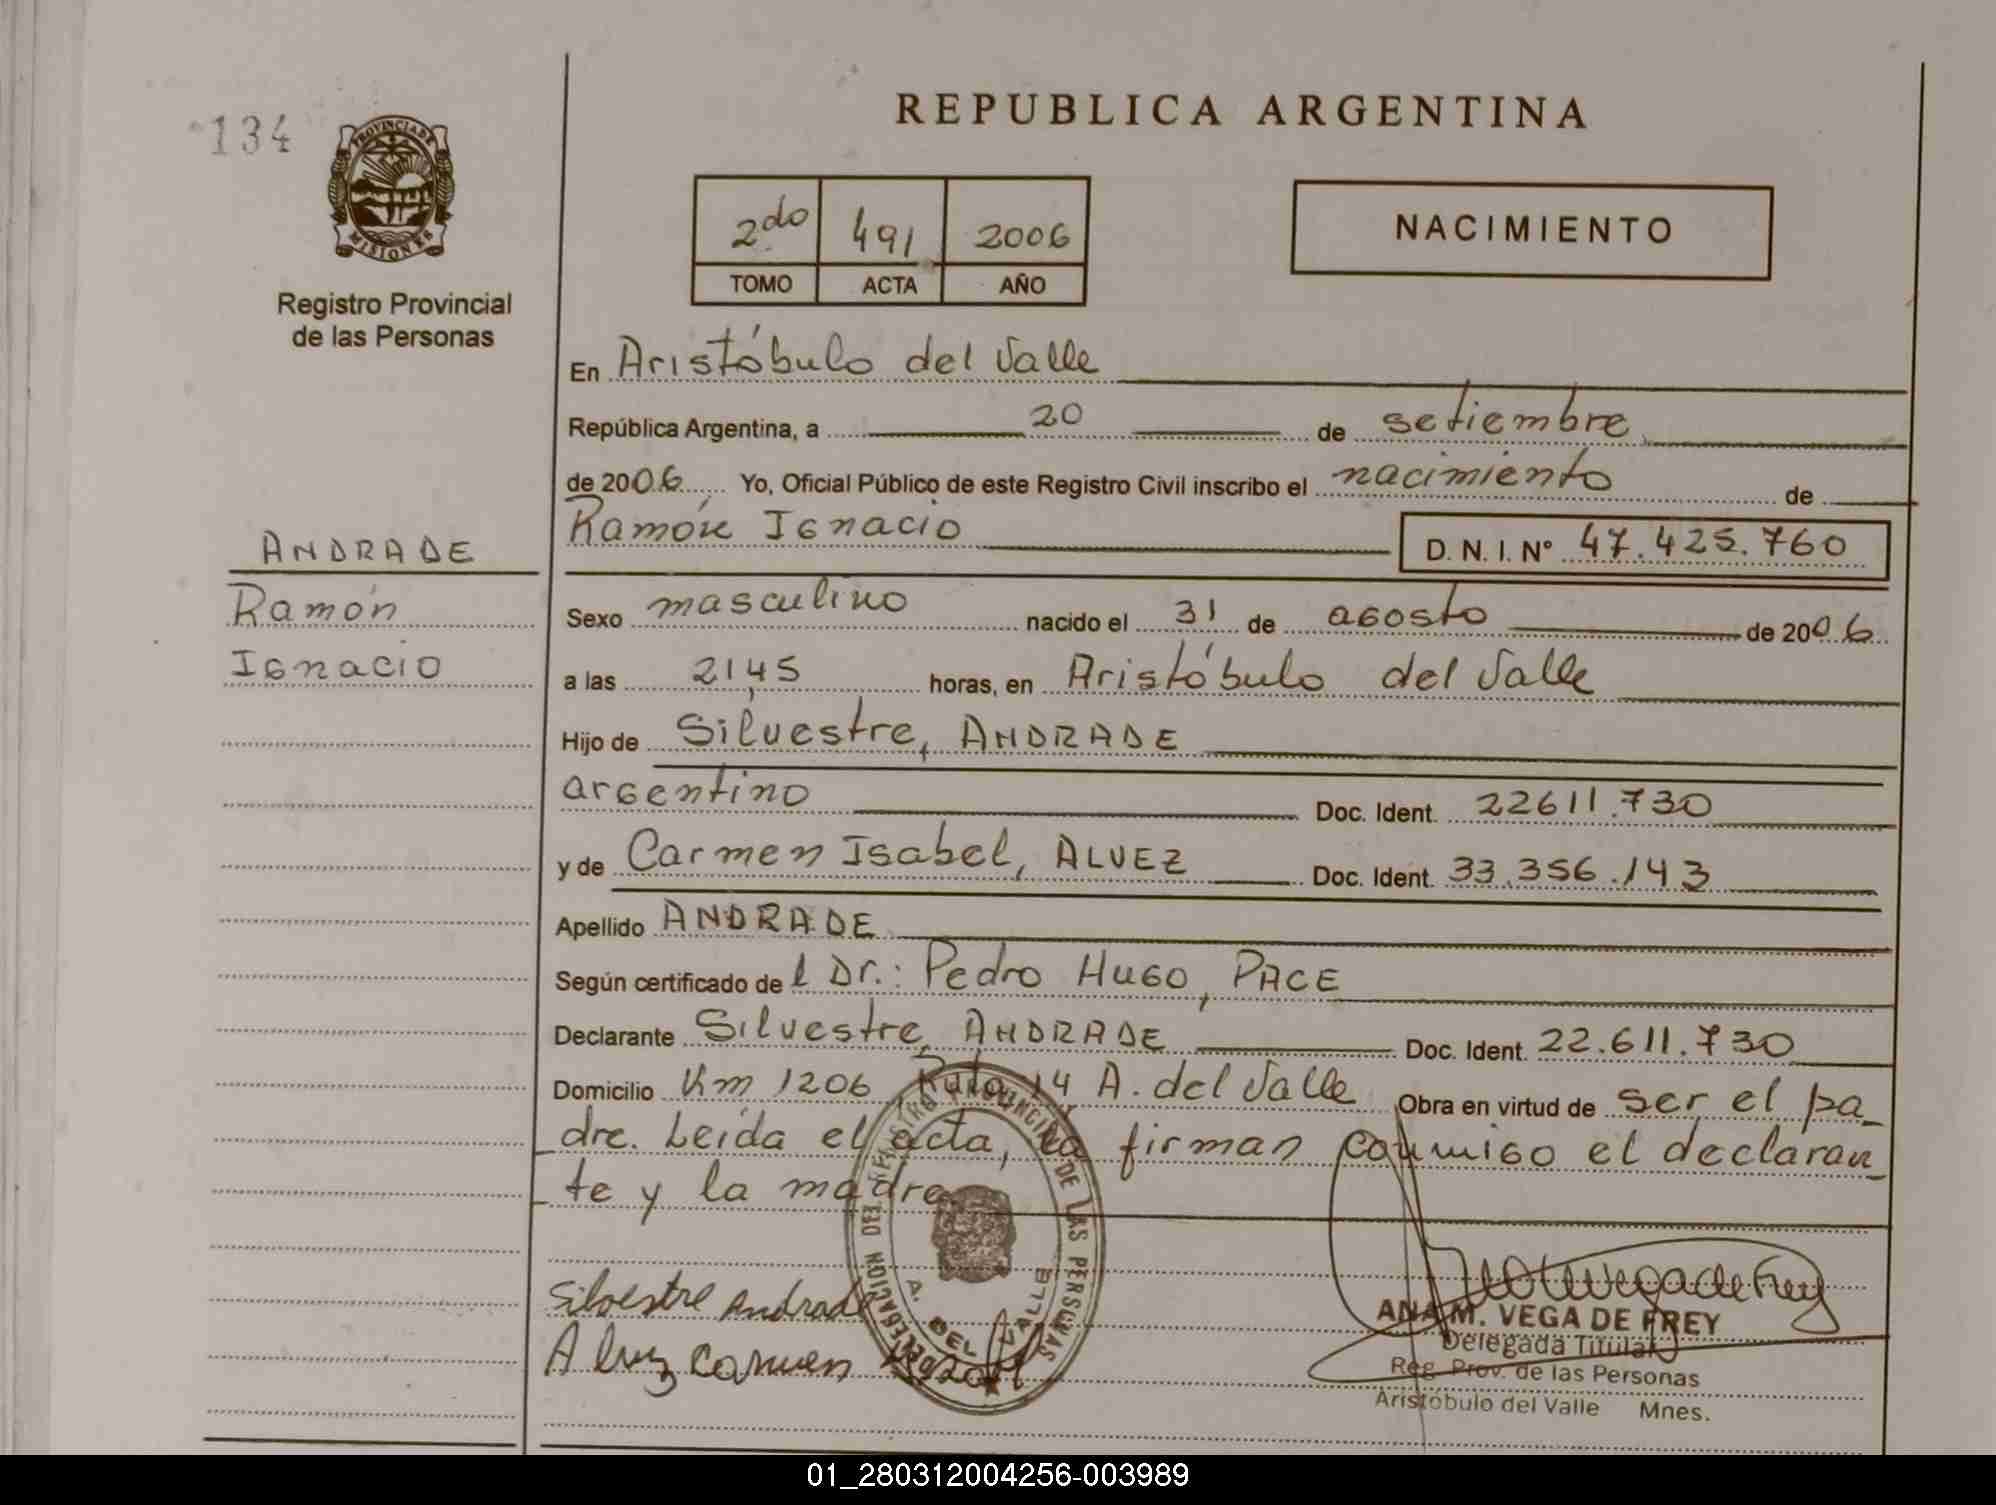 REPUBLICA ARGENTINA
134
PROVINCIA DE
MISIONES
Registro Provincial
de las Personas
2do 491 2006
TOMO ACTA AÑO
NACIMIENTO
En Aristóbulo del Valle
República Argentina, a 20 de setiembre
de 2006 Yo, Oficial Público de este Registro Civil inscribo el nacimiento de
Ramón Ignacio D. N. I. N° 47.425.760
ANDRADE
Ramón
Ignacio
Sexo masculino nacido el 31 de agosto de 2006
a las 21,45 horas, en Aristóbulo del Valle
Hijo de Silvestre, ANDRADE
argentino Doc. Ident. 22611.730
y de Carmen Isabel, ALVEZ Doc. Ident. 33.356.143
Apellido ANDRADE
Según certificado de l Dr.: Pedro Hugo, PACE
Declarante Silvestre, ANDRADE Doc. Ident. 22.611.730
Domicilio Km 1206 Ruta 14 A. del Valle Obra en virtud de ser el pa_
dre. Leída el acta, la firman conmigo el declaran_
te y la madre.
DELEGACION DEL REGISTRO PROVINCIAL DE LAS PERSONAS
A. DEL VALLE
Silvestre Andrade
Alvez Carmen
ANA M. VEGA DE FREY
Delegada Titular
Reg. Prov. de las Personas
Aristóbulo del Valle Mnes.
01_280312004256-003989